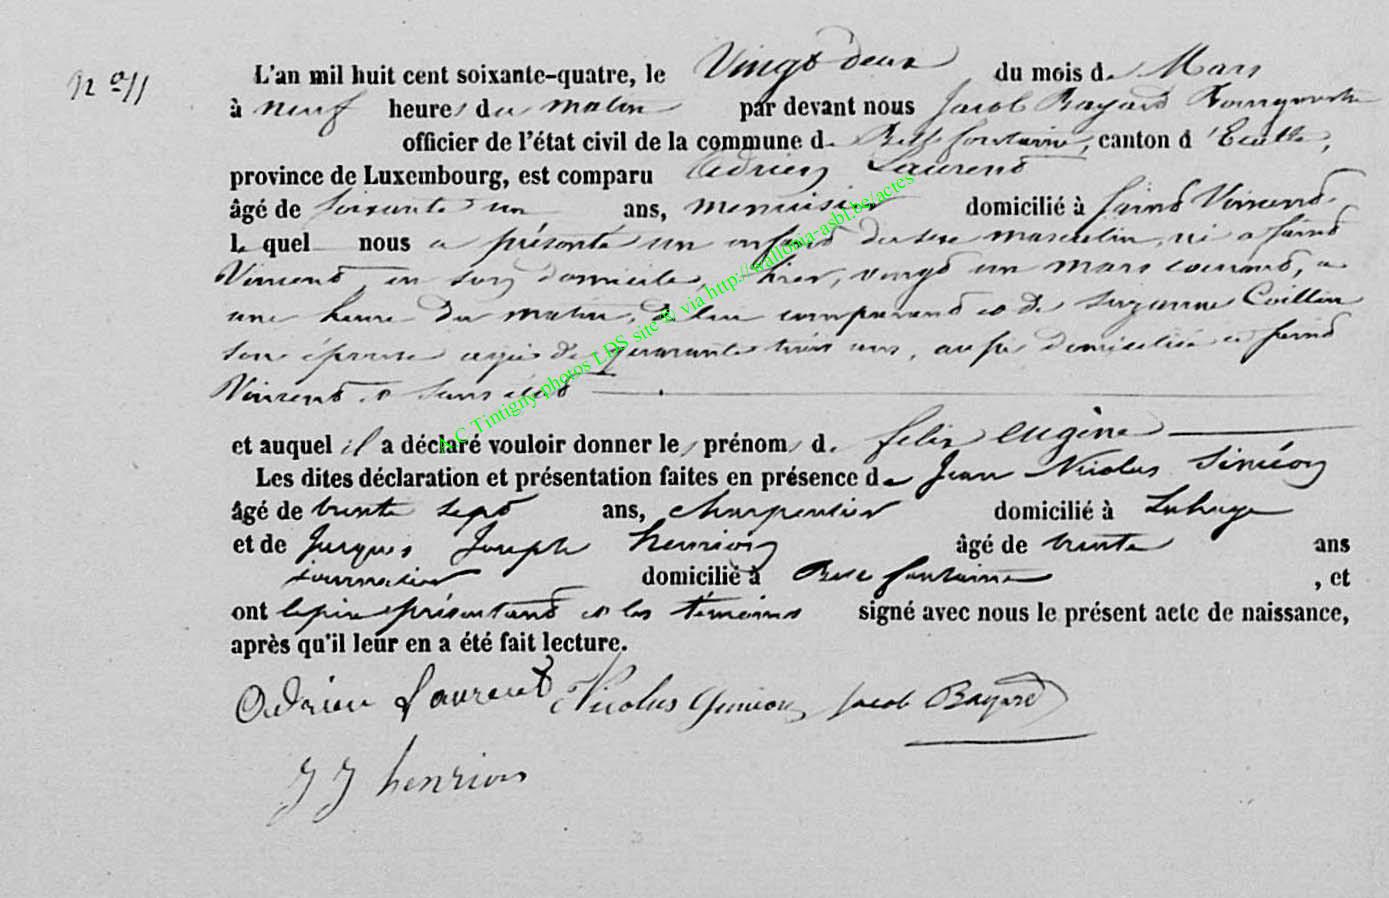 N° 11
L'an mil huit cent soixante-quatre, le Vingt deux du mois de Mars
à neuf heures du matin par devant nous Jacob Bayard Bourgmestre
officier de l'état civil de la commune de Bellefontaine, canton d'Etalle,
province de Luxembourg, est comparu Adrien Laurent
âgé de soixante un ans, menuisier domicilié à saint Vincent.
Lequel nous a présenté un enfant du sexe masculin, né a saint
Vincent, en son domicile, hier, vingt un mars courant, a
une heure du matin, de lui comparant et de Suzanne Coillin
son épouse agée de quarante trois ans, aussi domiciliée a saint
Vincent, et sans état
et auquel il a déclaré vouloir donner les prénoms de felix eugène
Les dites déclaration et présentation faites en présence de Jean Nicolas Siméon
âgé de trente sept ans, charpentier domicilié à Lahage
et de Jacques Joseph henrion âgé de trente ans
journalier domicilié à Bellefontaine, et
ont le père présentant et les témoins signé avec nous le présent acte de naissance,
après qu'il leur en a été fait lecture.
Adrien Laurent Nicolas Simeon Jacob Bayard
J J henrion
A.C Tintigny photos LDS site © via http://wallonia-asbl.be/actes